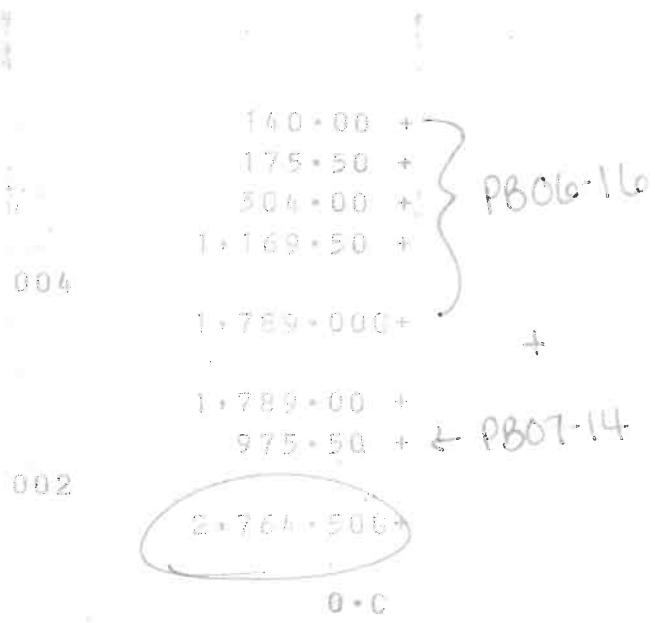 140.00 +
175.50 +
304.00 + PB06-16
1,169.50 +
004
1,789.00G+
+
1,789.00 +
975.50 + ← PB07-14
002
2,764.50G+
0.C